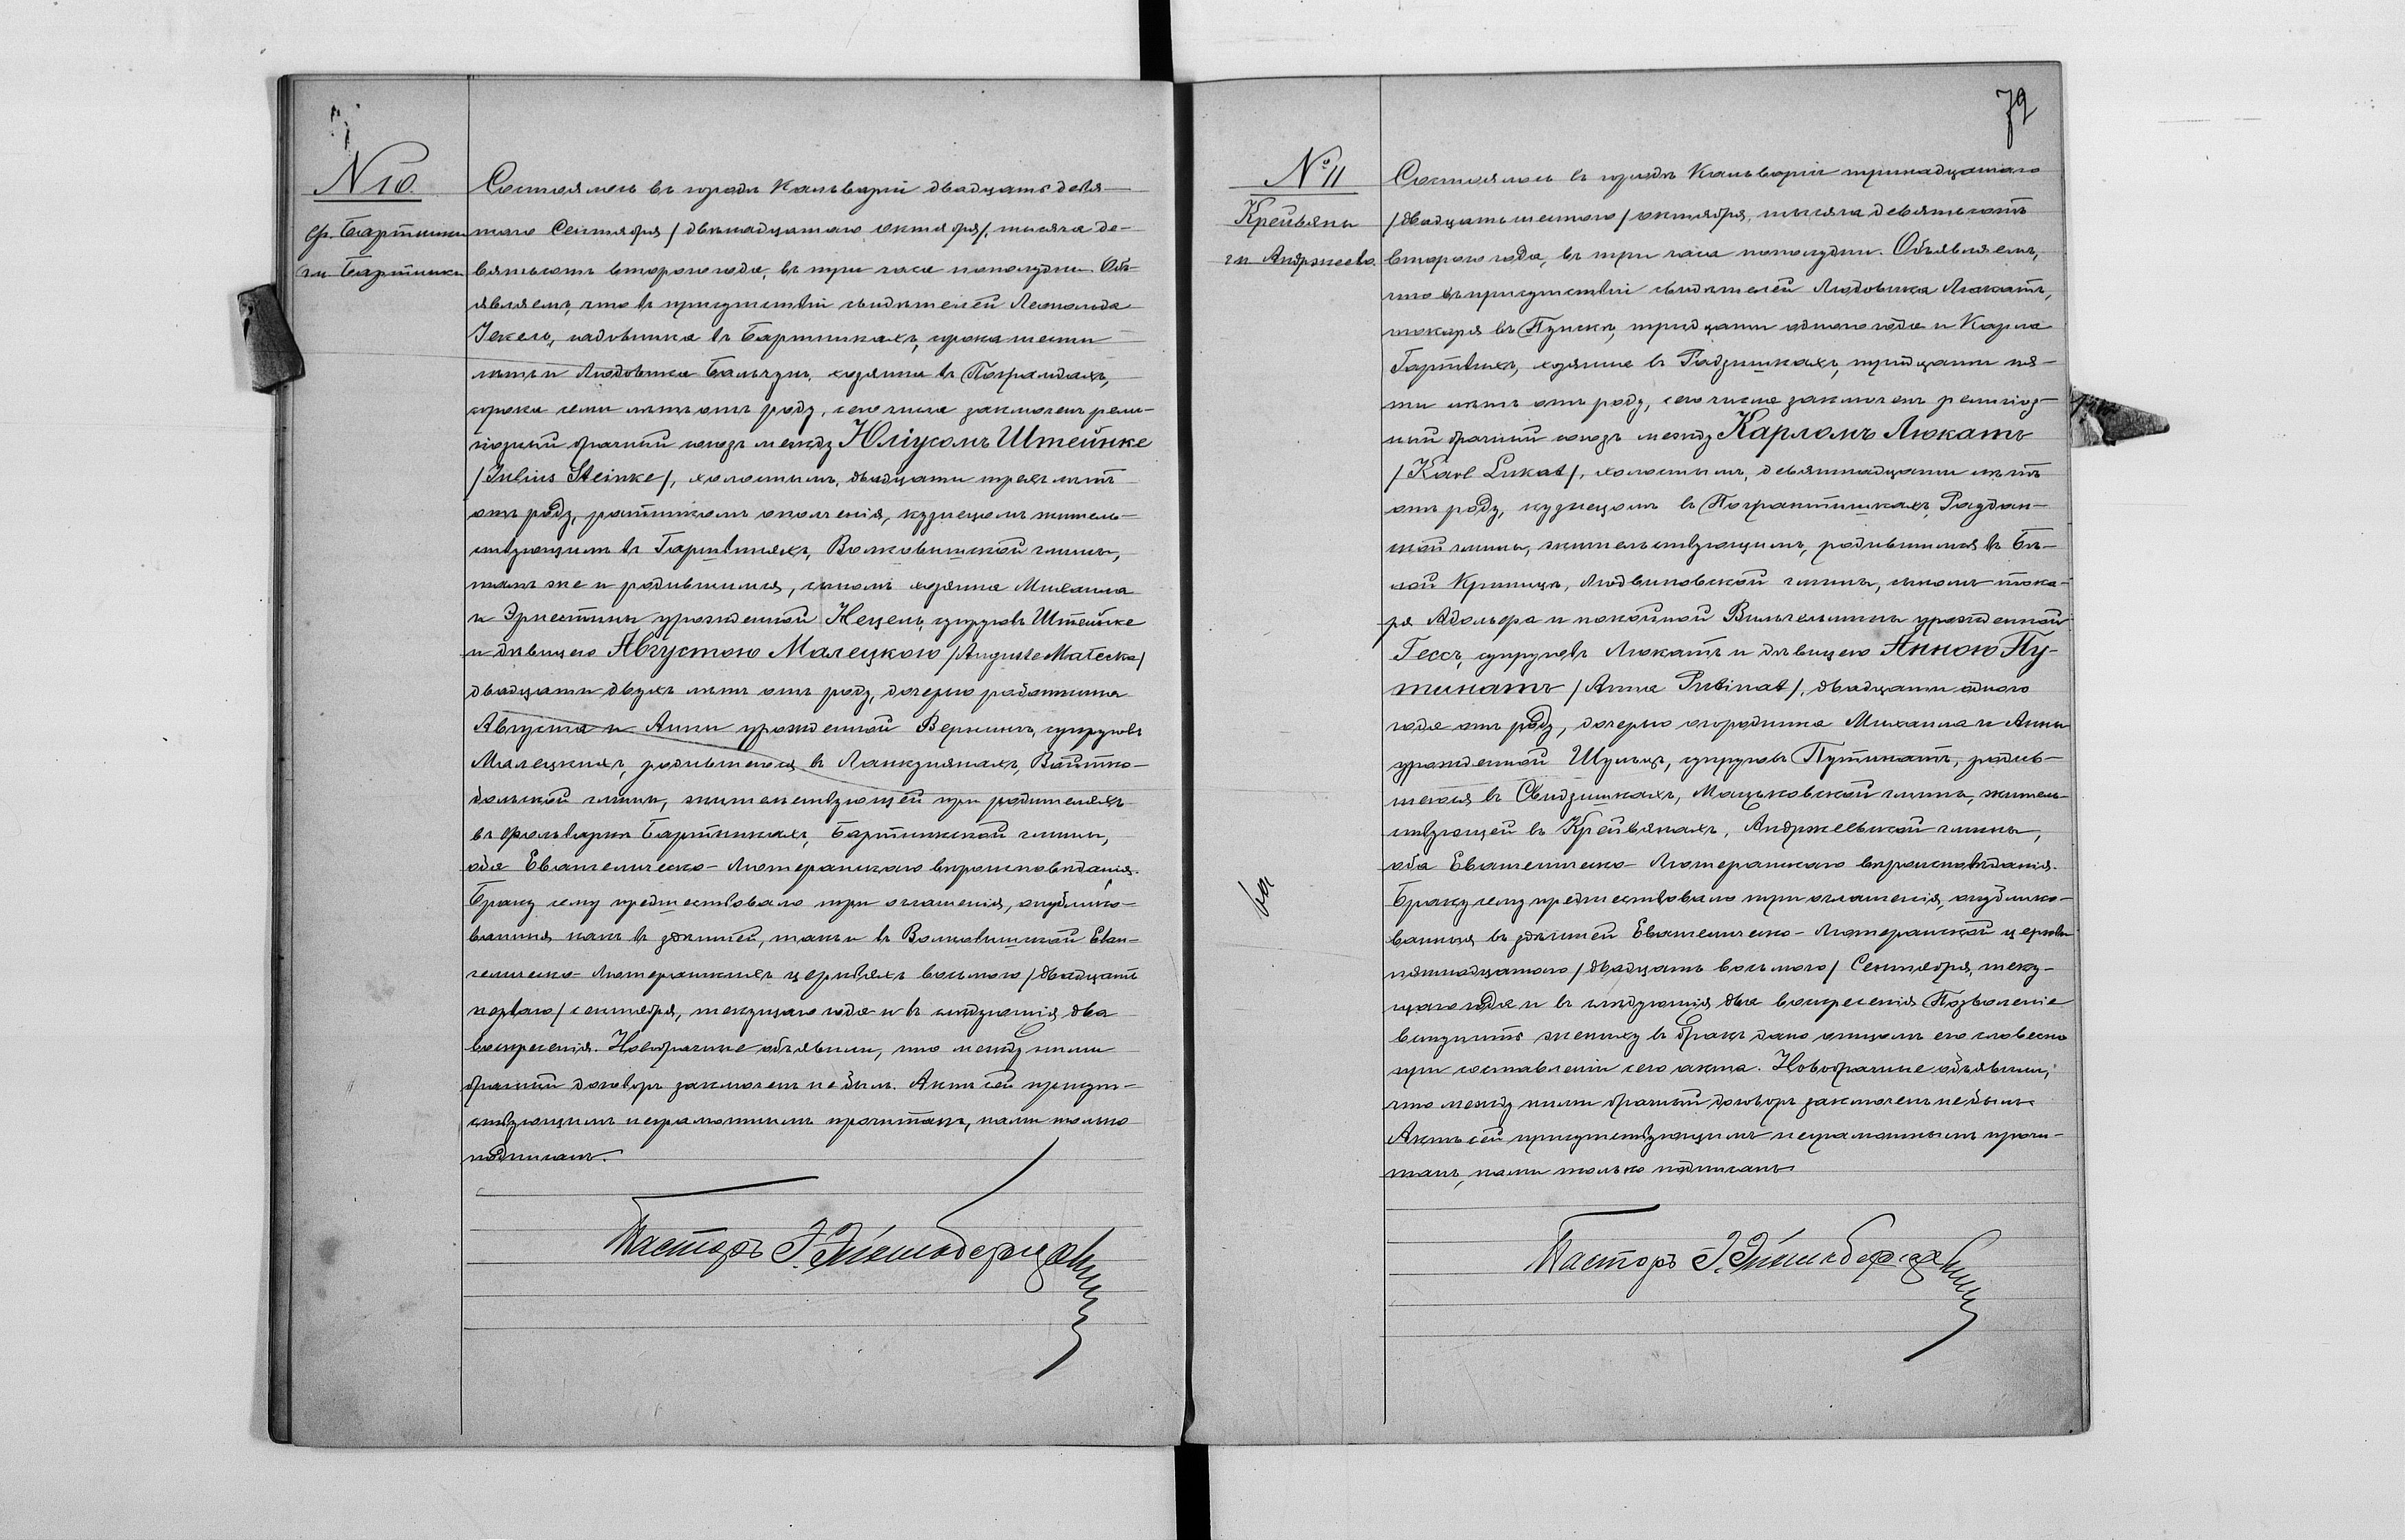 N 10.
ф. Бартники
гм. Бартники
Состоялось въ городѣ Кальваріи двадцать девя-
таго Сентября /двѣнадцатаго октября/, тысяча де-
вятьсотъ второго года, въ три часа пополудни. Объ-
являемъ, что въ присутствіи свидѣтелей Леопольда
Іекель, садовника въ Бартникахъ, сорока шести
лѣтъ и Людовика Бальчунъ, хозяина въ
сорока семи лѣтъ отъ роду, сего числа заключенъ рели-
гіозный брачный союзъ между Юліусомъ Штейнке
/Julius Steinke/, холостымъ, двадцати трехъ лѣтъ
отъ роду, ратникомъ ополченія, кузнецомъ житель-
ствующимъ въ Волковышской гмины,
тамъ же и родившимся, сыномъ хозяина Михаила
и Эрнестины урожденной Нецель, супруговъ Штейнке
и дѣвицею Августою Малецкою /Auguste Malecka/
двадцати двухъ лѣтъ отъ роду, дочерью работника
Августа и Анны урожденной Вернеръ, супруговъ
Малецкихъ, родившеюся въ Ланкупянахъ, Войтко-
больской гмины, жительствующей при родителяхъ
въ фольваркѣ Бартникахъ, Бартникской гмины,
оба Евангелическо-Лютеранскаго вѣроисповѣданія.
Браку сему предшествовало три оглашенія, опублико-
ванныя какъ въ здѣшней, такъ и въ Волковышской Еван-
гелическо-Лютеранскихъ церквахъ восьмого /двадцать
перваго/ сентября, текущаго года и въ слѣдующія два
воскресенія. Новобрачные объявили, что между ними
брачный договоръ заключенъ не былъ. Актъ сей присут-
ствующимъ неграмотнымъ прочитанъ, нами только
подписанъ.
Пасторъ

72
№ 11
Крейвяны
гм. Андржеево.
Состоялось въ городѣ Кальваріи тринадцатаго
/двадцать шестого/ октября, тысяча девятьсотъ
второго года, въ три часа пополудни. Объявляемъ,
что въ присутствіи свидѣтелей Людовика Люкатъ,
токаря въ Пунскѣ, тридцати одного года и Карла
Гартвихъ, хозяина въ Радзишкахъ, тридцати пя-
ти лѣтъ отъ роду, сего числа заключенъ религіоз-
ный брачный союзъ между Карломъ Люкатъ
/Karl Lukat/, холостымъ, девятнадцати лѣтъ
отъ роду, кузнецомъ въ Рагздан-
ской гмины, жительствующимъ, родившимся въ Бѣ-
лой Криницѣ, Людвиновской гмины, сыномъ тока-
ря Адольфа и покойной Вильгельмины урожденной
Гессъ, супруговъ Люкатъ и дѣвицею Анною Пу-
тинатъ /Anna Putinat/, двадцати одного
года отъ роду, дочерью огородника Михаила и Анны
урожденной Шульцъ, супруговъ Путинатъ, родив-
шеюся въ Свидзишкахъ, Мацьковской гмины, житель-
ствующей въ Крейвянахъ, Андржеевской гмины,
оба Евангелическо-Лютеранскаго вѣроисповѣданія.
Браку сему предшествовало три оглашенія, опублико-
ванныя въ здѣшней Евангелическо-Лютеранской церкви
пятнадцатаго /двадцать восьмого/ Сентября, теку-
щаго года и въ слѣдующія два воскресенія Позволеніе
вступить жениху въ бракъ дано отцомъ его словесно
при составленіи сего акта. Новобрачные объявили,
что между ними брачный договоръ заключенъ не былъ
Актъ сей присутствующимъ неграмотнымъ прочи-
танъ, нами только подписанъ
Пасторъ